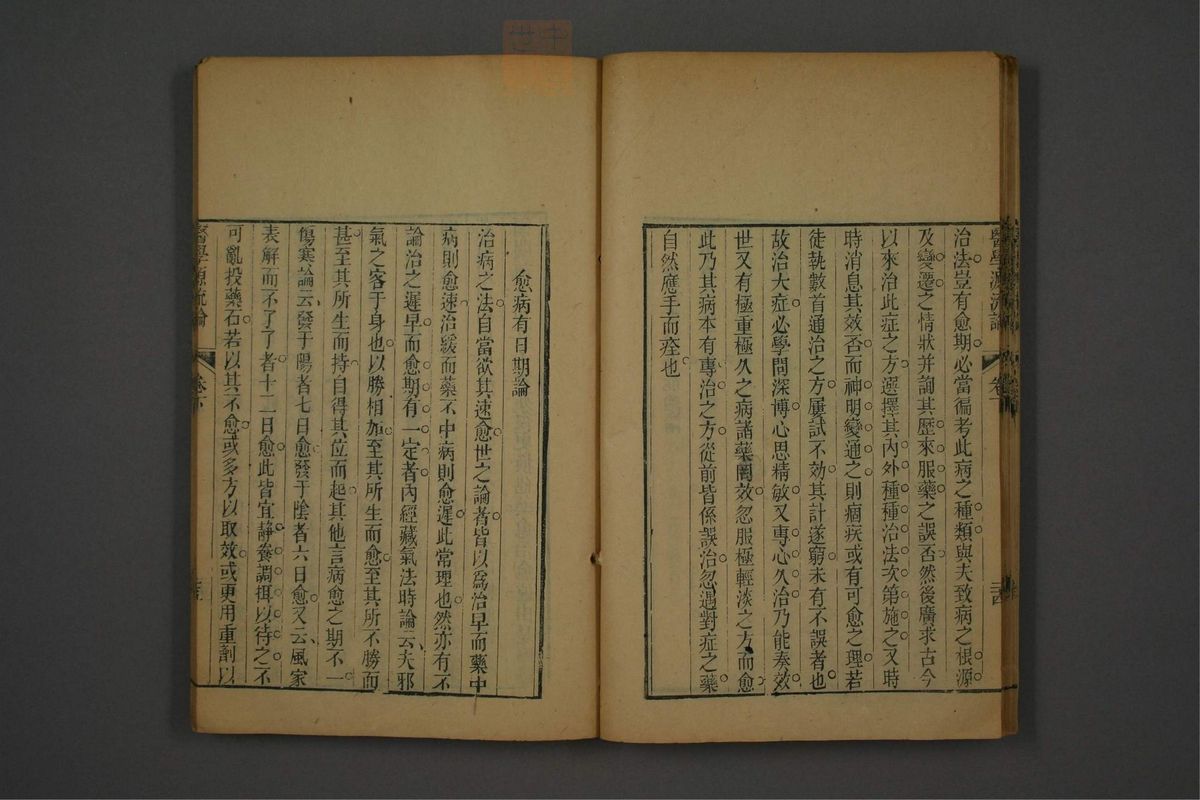 醫學源流論 卷下 三四
治法豈有愈期必當徧考此病之種類與夫致病之根源
及變遷之情狀并詢其歷來服藥之誤否然後廣求古今
以來治此症之方選擇其內外種種治法次第施之又時
時消息其效否而神明變通之則痼疾或有可愈之理若
徒執數首通治之方屢試不效其計遂窮未有不誤者也
故治大症必學問深博心思精敏又專心久治乃能奏效
世又有極重極久之病諸藥罔效忽服極輕淡之方而愈
此乃其病本有專治之方從前皆係誤治忽遇對症之藥
自然應手而痊也
愈病有日期論
治病之法自當欲其速愈世之論者皆以爲治早而藥中
病則愈速治緩而藥不中病則愈遲此常理也然亦有不
論治之遲早而愈期有一定者內經藏氣法時論云夫邪
氣之客于身也以勝相加至其所生而愈至其所不勝而
甚至其所生而持自得其位而起其他言病愈之期不一
傷寒論云發于陽者七日愈發于陰者六日愈又云風家
表解而不了了者十二日愈此皆宜靜養調攝以待之不
可亂投藥石若以其不愈或多方以取效或更用重劑以
醫學源流論 卷下